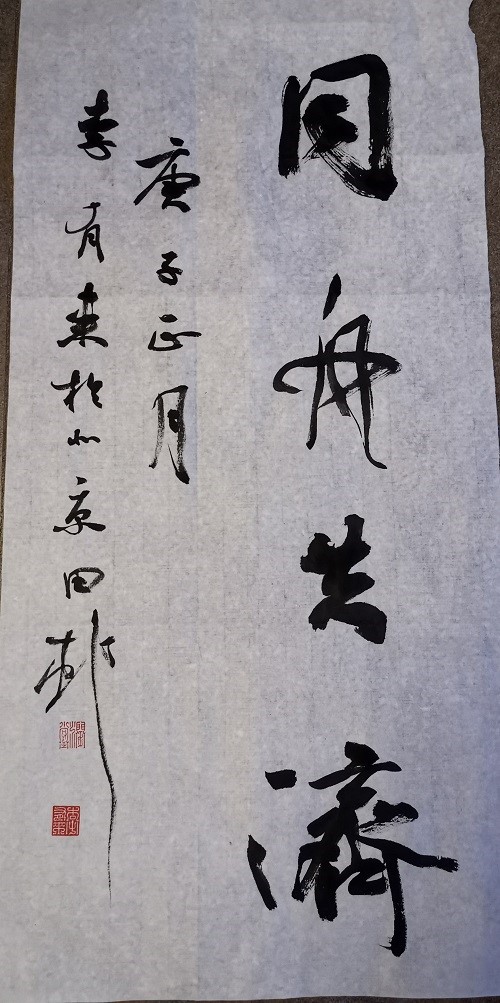 同舟共濟
庚子正月
李有来於北京田村